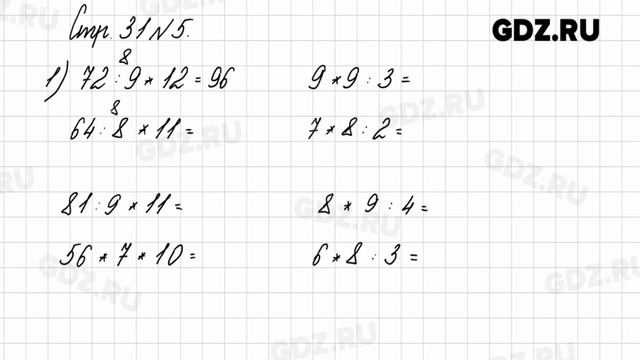 Стр. 31 № 5.
GDZ.RU
8
1) 72 : 9 * 12 = 96
9 * 9 : 3 =
8
64 : 8 * 11 =
7 * 8 : 2 =
81 : 9 * 11 =
8 * 9 : 4 =
56 * 7 * 10 =
6 * 8 : 3 =
GDZ.RU
GDZ.RU
GDZ.RU
GDZ.RU
GDZ.RU
GDZ.RU
GDZ.RU